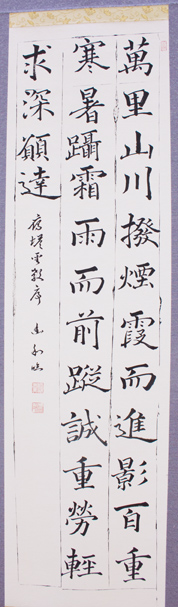 萬里山川撥煙霞而進影百重
寒暑躡霜雨而前蹤誠重勞輕
求深願達
雁塔聖教序